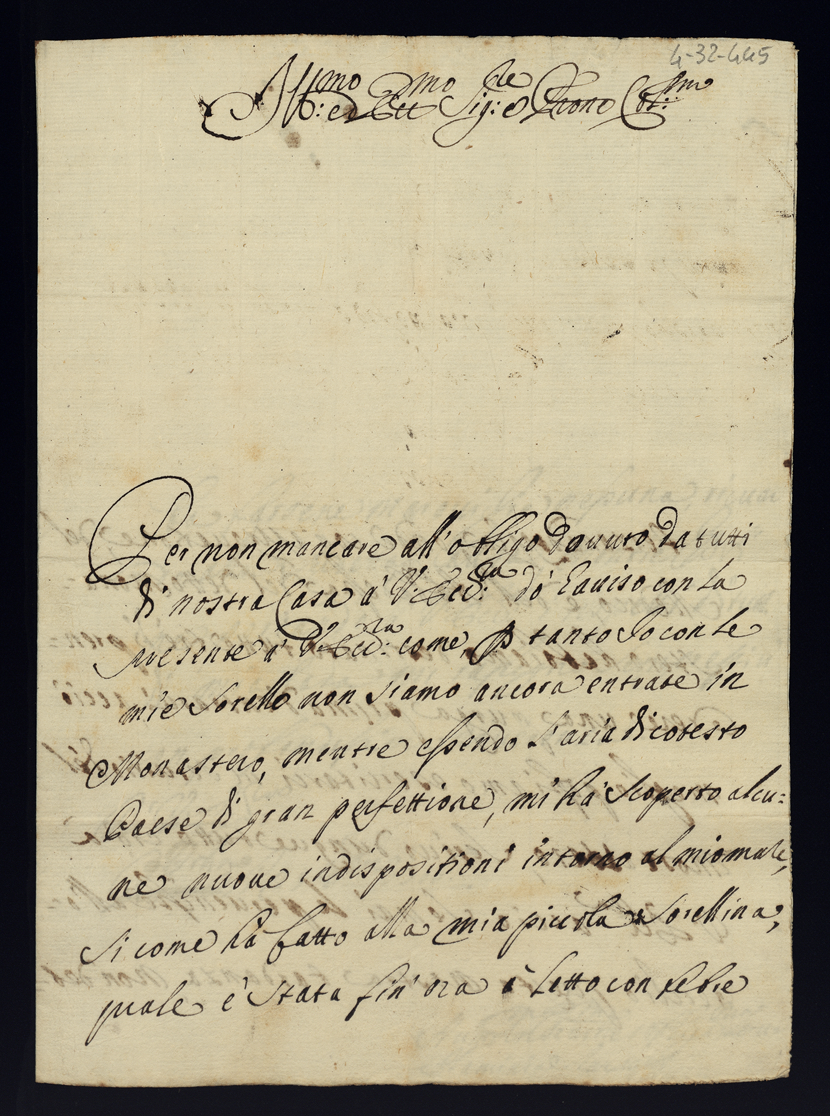 4-32-445
Ill:mo ed Ecc:mo Sig:re e Pron Col:mo
Per non mancare all'obligo dovuto da tutti
di nostra Casa à V: Ecc:za dò l'aviso con la
presente à V: Ecc:za come, p tanto Io con le
mie Sorelle non siamo ancora entrate in
Monastero, mentre essendo l'aria di cotesto
Paese di gran perfettione, mi hà scoperto alcu=
ne nuove indispositioni intorno al mio male,
si come hà fatto alla mia piccola Sorellina,
quale è stata fin'ora à letto con febre